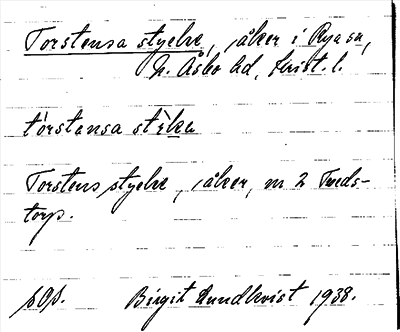 Torstensa stycke, åker i Rya sn,
N. Åsbo hd, Krist. l.
tórstansa stɛ̀ka
Torstens stycke, åker, nr 2 Tveds-
torp.
sOs. Birgit Lundkvist 1938.